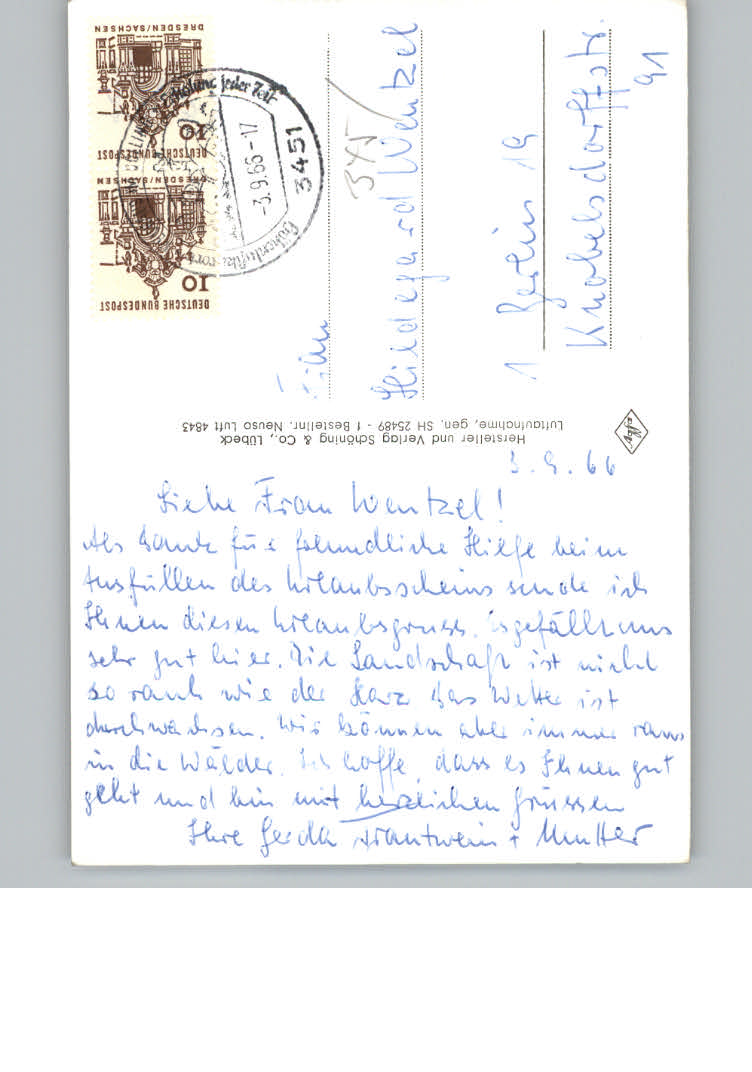 DEUTSCHE BUNDESPOST
10
DRESDEN/SACHSEN
DEUTSCHE BUNDESPOST
10
DRESDEN/SACHSEN
3451
-3.9.66-17
jeder Zeit
Frau
Hildegard Wentzel
345
1 Berlin 19
Knobelsdorffstr.
91
Hersteller und Verlag Schöning & Co., Lübeck
Luftaufnahme, gen. SH 25489 - 1 Bestellnr. Neuso Luft 4843
3.9.66
Liebe Frau Wentzel!
Als Dank für freundliche Hilfe beim
Ausfüllen des Urlaubsscheins sende ich
Ihnen diesen Urlaubsgruss. Es gefällt uns
sehr gut hier. Die Landschaft ist nicht
so rauh wie der Harz. Das Wetter ist
durchwachsen. Wir können aber immer raus
in die Wälder. Ich hoffe, dass es Ihnen gut
geht und bin mit herzlichen Grüssen
Ihre Gerda Trantwein + Mutter